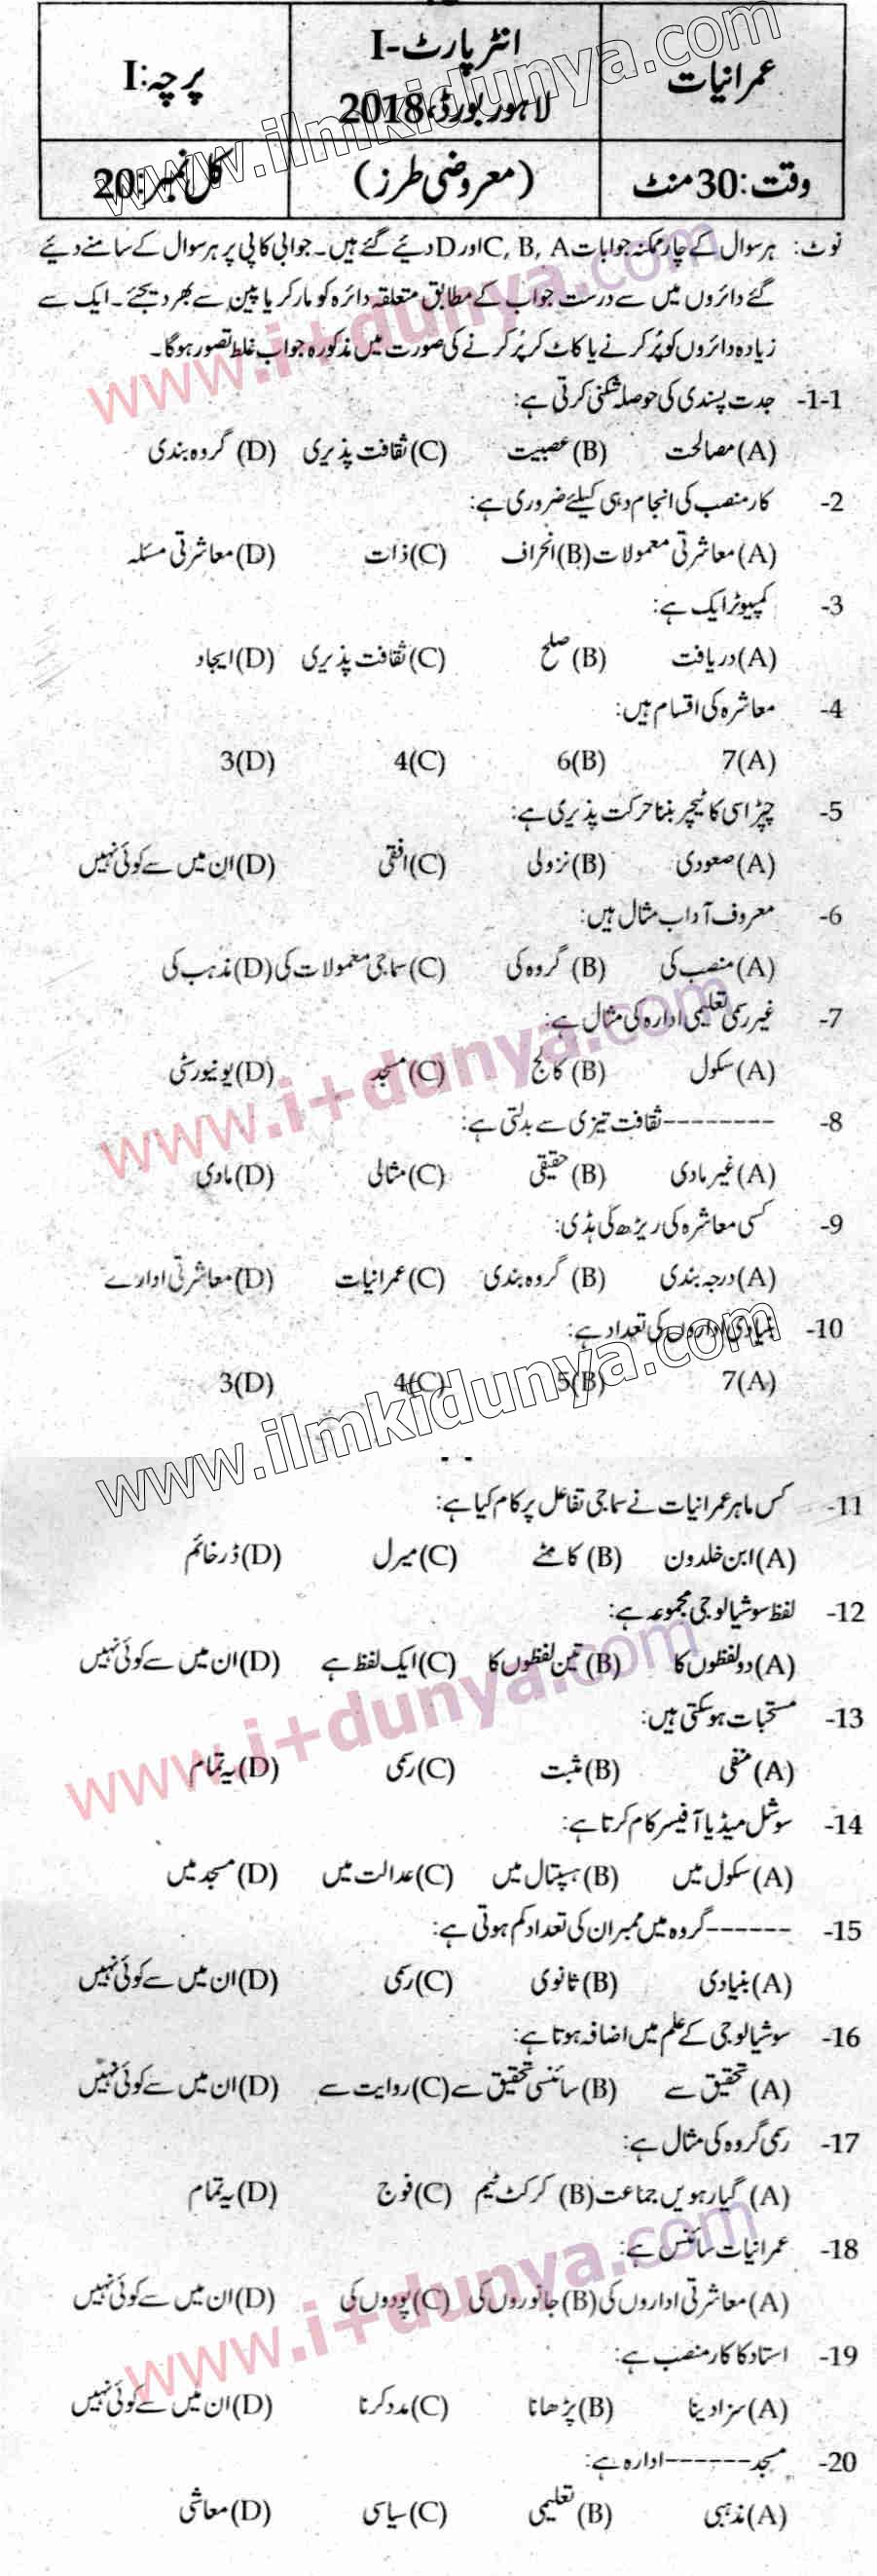 عمرانیات
انٹر پارٹ-I
لاہور بورڈ، 2018
پرچہ: I
وقت: 30 منٹ
(معروضی طرز)
کل نمبر: 20
نوٹ: ہر سوال کے چار ممکنہ جوابات C, B, A اور D دیئے گئے ہیں۔ جوابی کاپی پر ہر سوال کے سامنے دیئے
گئے دائروں میں سے درست جواب کے مطابق متعلقہ دائرہ کو مارکر یا پین سے بھر دیجئے۔ ایک سے
زیادہ دائروں کو پُر کرنے یا کاٹ کر پُر کرنے کی صورت میں مذکورہ جواب غلط تصور ہوگا۔
1-1- جدت پسندی کی حوصلہ شکنی کرتی ہے:
(A) مصالحت (B) عصبیت (C) ثقافت پذیری (D) گروہ بندی
2- کار منصب کی انجام دہی کیلئے ضروری ہے:
(A) معاشرتی معمولات (B) انحراف (C) ذات (D) معاشرتی مسئلہ
3- کمپیوٹر ایک ہے:
(A) دریافت (B) صلح (C) ثقافت پذیری (D) ایجاد
4- معاشرہ کی اقسام ہیں:
(A) 7 (B) 6 (C) 4 (D) 3
5- چپڑاسی کا ٹیچر بننا حرکت پذیری ہے:
(A) صعودی (B) نزولی (C) افقی (D) ان میں سے کوئی نہیں
6- معروف آداب مثال ہیں:
(A) منصب کی (B) گروہ کی (C) سماجی معمولات کی (D) مذہب کی
7- غیر رسمی تعلیمی ادارہ کی مثال ہے:
(A) سکول (B) کالج (C) مسجد (D) یونیورسٹی
8- -------- ثقافت تیزی سے بدلتی ہے:
(A) غیر مادی (B) حقیقی (C) مثالی (D) مادی
9- کسی معاشرہ کی ریڑھ کی ہڈی:
(A) درجہ بندی (B) گروہ بندی (C) عمرانیات (D) معاشرتی ادارے
10- بنیادی اداروں کی تعداد ہے:
(A) 7 (B) 5 (C) 4 (D) 3
11- کس ماہر عمرانیات نے سماجی تفاعل پر کام کیا ہے:
(A) ابن خلدون (B) کامٹے (C) میرل (D) ڈرخائم
12- لفظ سوشیالوجی مجموعہ ہے:
(A) دو لفظوں کا (B) تین لفظوں کا (C) ایک لفظ ہے (D) ان میں سے کوئی نہیں
13- مستحبات ہو سکتی ہیں:
(A) منفی (B) مثبت (C) رسمی (D) یہ تمام
14- سوشل میڈیا آفیسر کام کرتا ہے:
(A) سکول میں (B) ہسپتال میں (C) عدالت میں (D) مسجد میں
15- ------ گروہ میں ممبران کی تعداد کم ہوتی ہے:
(A) بنیادی (B) ثانوی (C) رسمی (D) ان میں سے کوئی نہیں
16- سوشیالوجی کے علم میں اضافہ ہوتا ہے:
(A) تحقیق سے (B) سائنسی تحقیق سے (C) روایت سے (D) ان میں سے کوئی نہیں
17- رسمی گروہ کی مثال ہے:
(A) گیارہویں جماعت (B) کرکٹ ٹیم (C) فوج (D) یہ تمام
18- عمرانیات سائنس ہے:
(A) معاشرتی اداروں کی (B) جانوروں کی (C) پودوں کی (D) ان میں سے کوئی نہیں
19- استاد کا کار منصب ہے:
(A) سزا دینا (B) پڑھانا (C) مدد کرنا (D) ان میں سے کوئی نہیں
20- مسجد ------ ادارہ ہے:
(A) مذہبی (B) تعلیمی (C) سیاسی (D) معاشی
www.ilmkidunya.com
www.i+dunya.com
www.i+dunya.com
www.ilmkidunya.com
www.i+dunya.com
www.i+dunya.com